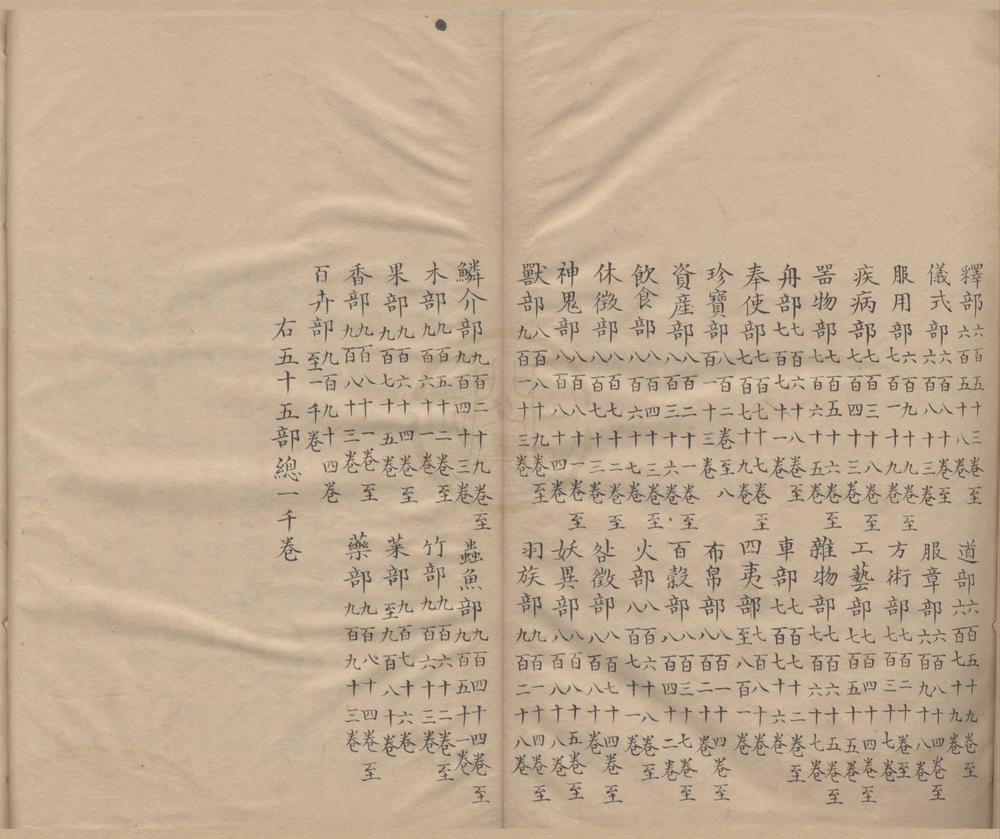 釋部六百五十三卷至六百五十八卷 道部六百五十九卷至六百七十九卷
儀式部六百八十卷至六百八十三卷 服章部六百八十四卷至六百九十八卷
服用部六百九十九卷至七百一十九卷 方術部七百二十卷至七百三十七卷
疾病部七百三十八卷至七百四十三卷 工藝部七百四十四卷至七百五十五卷
噐物部七百五十六卷至七百六十五卷 雜物部七百六十五卷至七百六十七卷
舟部七百六十八卷至七百七十一卷 車部七百七十二卷至七百七十六卷
奉使部七百七十七卷至七百七十九卷 四夷部七百八十卷至八百一卷
珍寶部八百二卷至八百一十三卷 布帛部八百一十四卷至八百二十卷
資産部八百二十一卷至八百三十六卷 百穀部八百三十七卷至八百四十二卷
飲食部八百四十三卷至八百六十七卷 火部八百六十八卷至八百七十一卷
休徵部八百七十二卷至八百七十三卷 咎徵部八百七十四卷至八百八十卷
神鬼部八百八十一卷至八百八十四卷 妖異部八百八十五卷至八百八十八卷
獸部八百八十九卷至九百一十三卷 羽族部九百一十四卷至九百二十八卷
鱗介部九百二十九卷至九百四十三卷 蟲魚部九百四十四卷至九百五十一卷
木部九百五十二卷至九百六十一卷 竹部九百六十二卷至九百六十三卷
果部九百六十四卷至九百七十五卷 菜部九百七十六卷至九百八十卷
香部九百八十一卷至九百八十三卷 藥部九百八十四卷至九百九十三卷
百卉部九百九十四卷至一千卷
右五十五部總一千卷